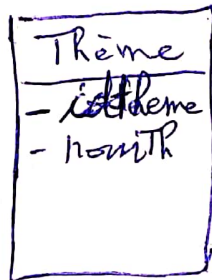 Thème
- idtheme
- nomTh